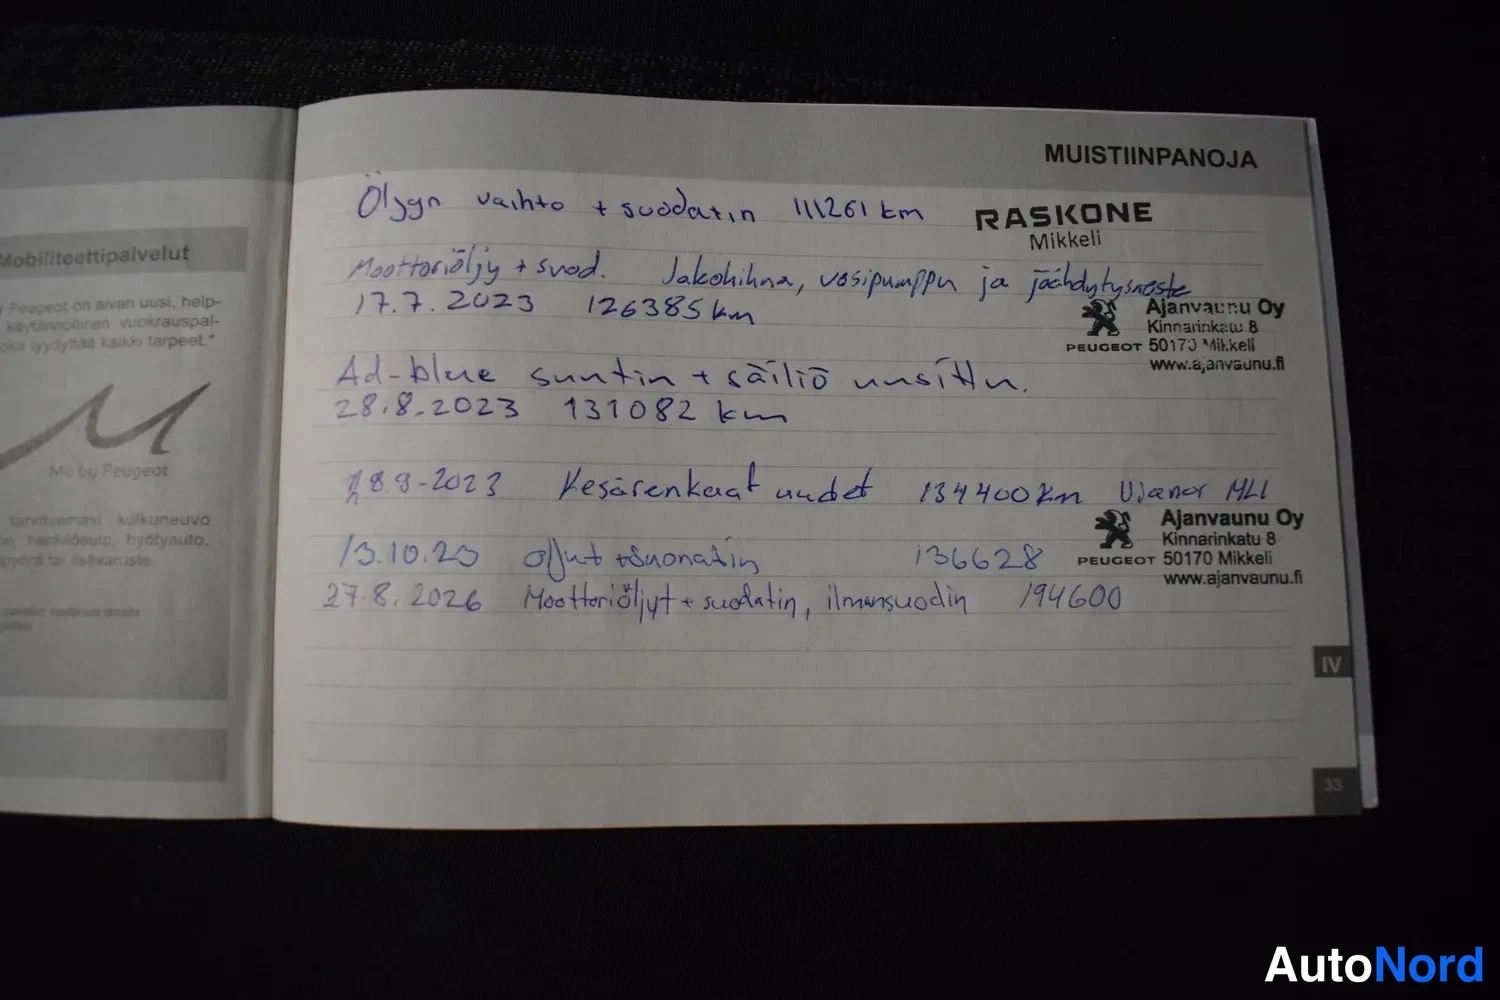 Mobiliteettipalvelut
Peugeot on aivan uusi, help-
käytännöllinen vuokrauspal-
joka tyydyttää kaikki tarpeet.*
Mu by Peugeot
tarvitsemasi kulkuneuvo
henkilöauto, hyötyauto,
tai lisävaruste.
MUISTIINPANOJA
Öljyn vaihto + suodatin 111261 km
RASKONE
Mikkeli
Moottoriöljy + suod. Jakohihna, vesipumppu ja jäähdytysneste
17.7.2023 126385 km
Ajanvaunu Oy
Kinnarinkatu 8
PEUGEOT 50170 Mikkeli
www.ajanvaunu.fi
Ad-blue suutin + säiliö uusittu.
28.8.2023 131082 km
8.9-2023 Kesärenkaat uudet 134400 km Vianor MLI
Ajanvaunu Oy
Kinnarinkatu 8
PEUGEOT 50170 Mikkeli
www.ajanvaunu.fi
13.10.23 öljyt + suodatin 136628
27.8.2026 Moottoriöljyt + suodatin, ilmansuodin 194600
IV
33
AutoNord